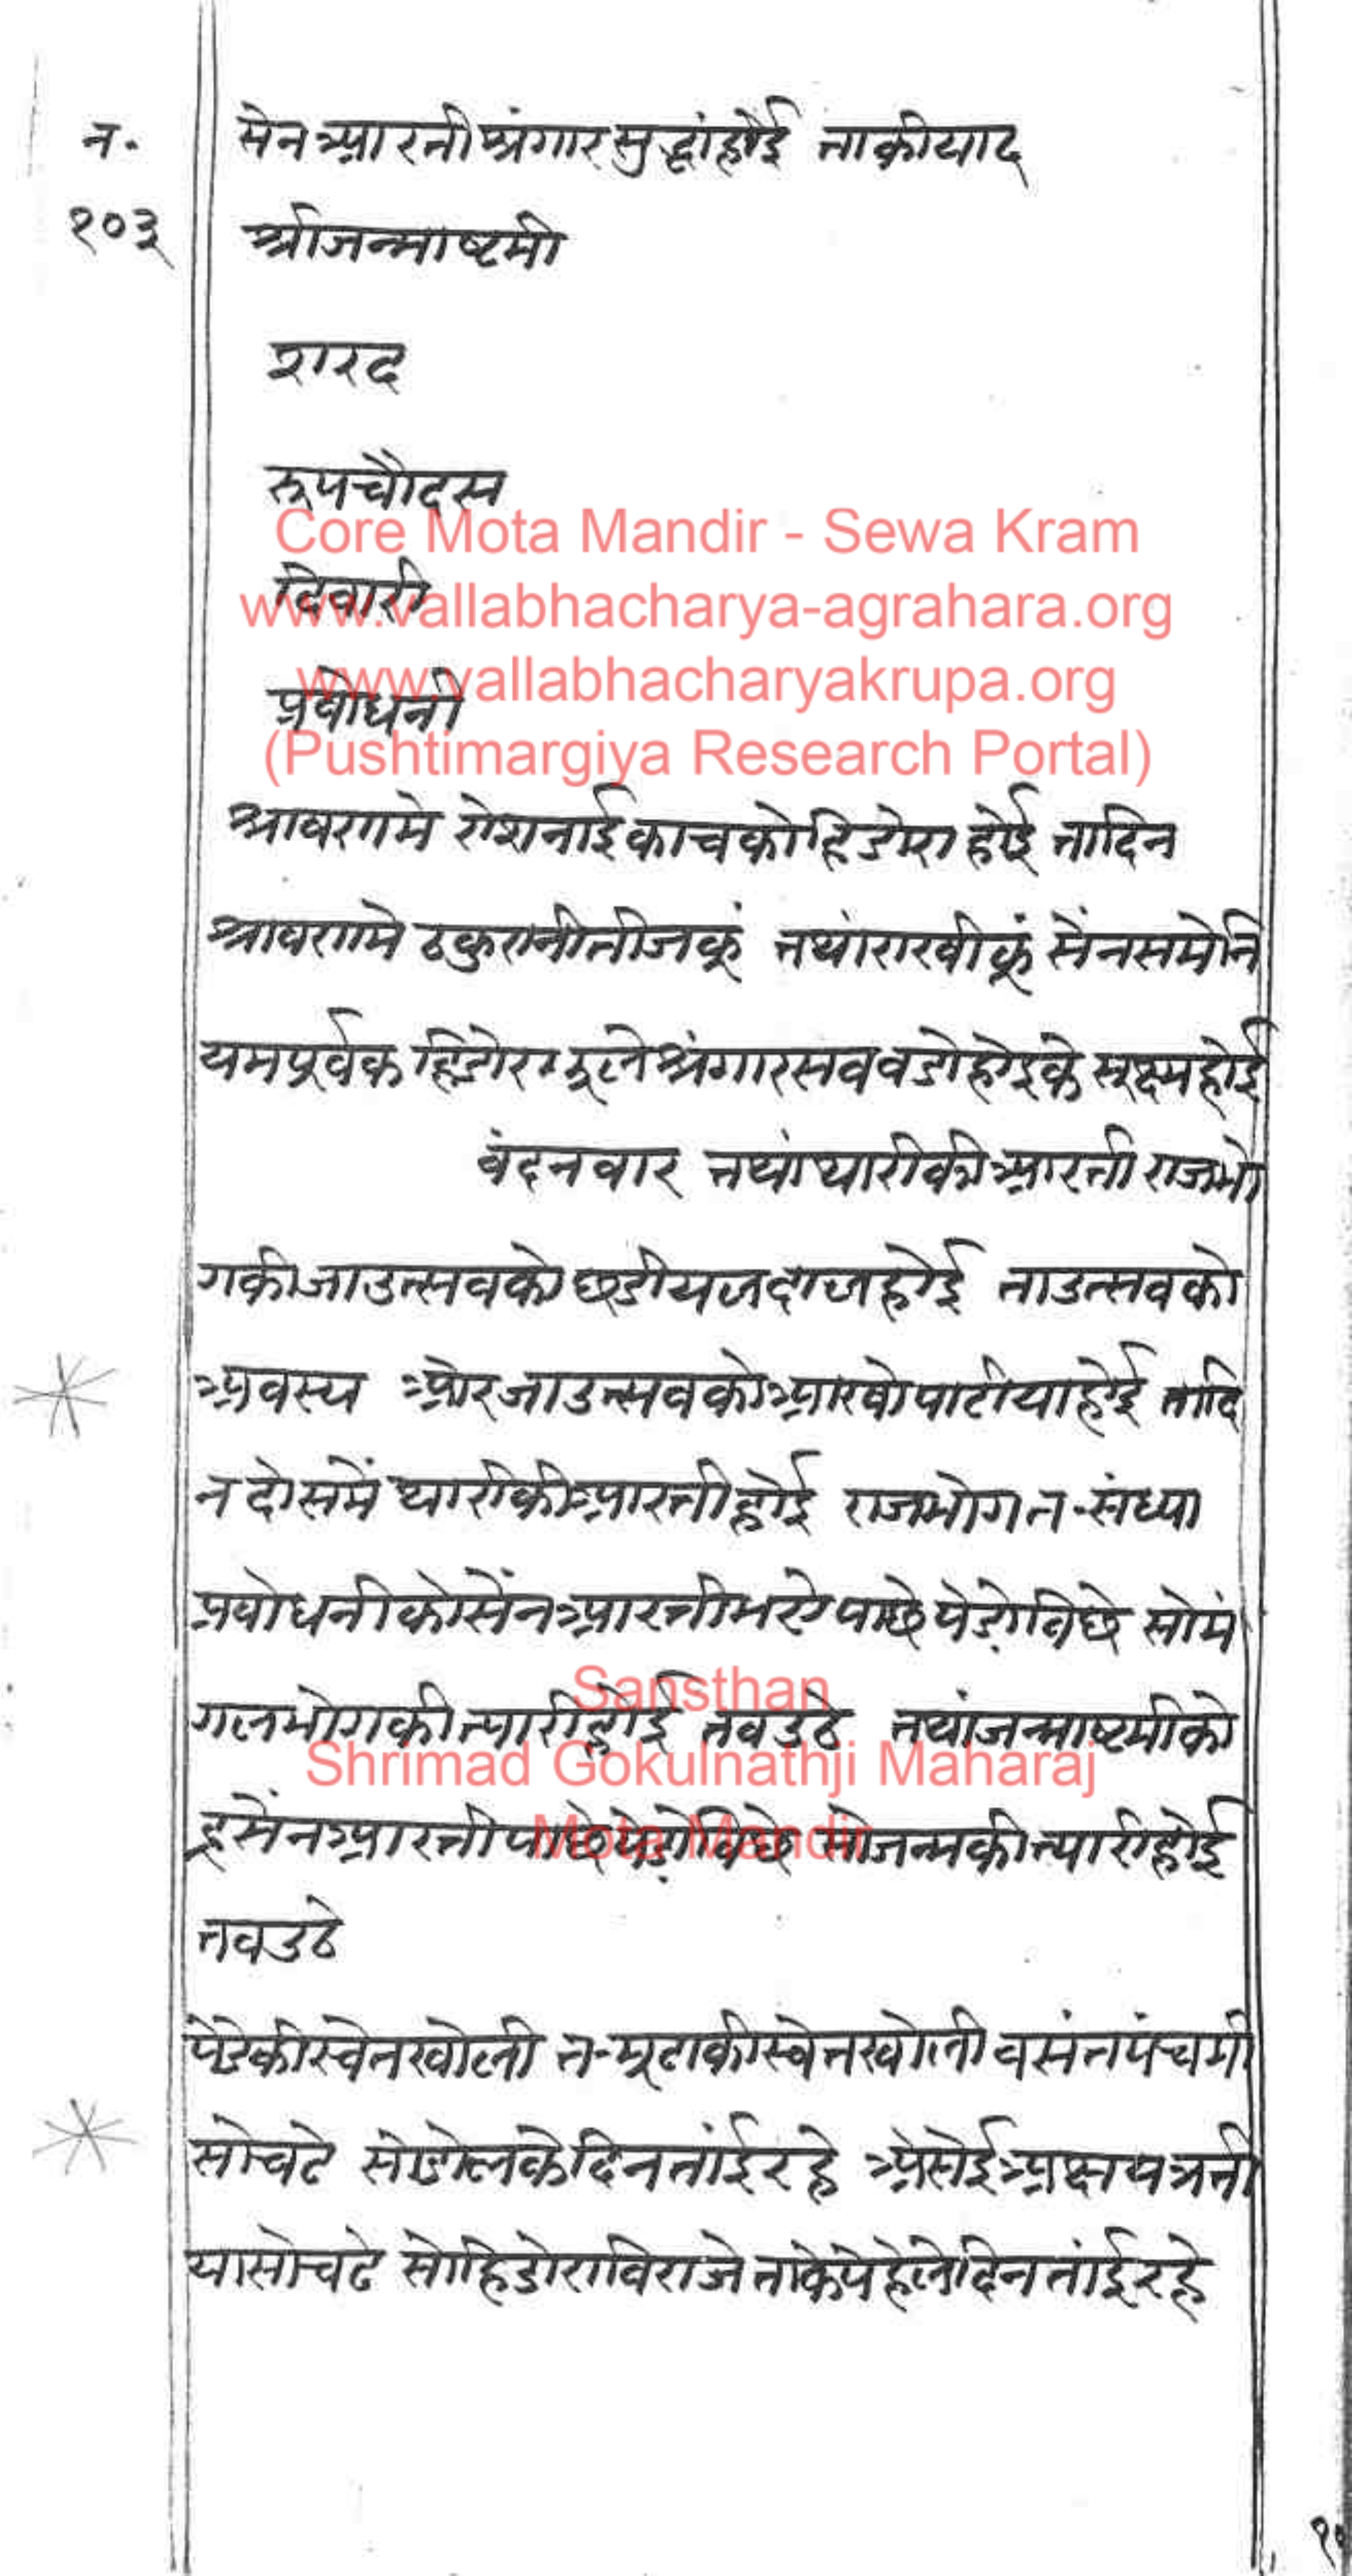 न॰ सेन आरती श्रंगार सुद्धां होई ताकी याद
१०३ श्रीजन्माष्टमी
शरद
रूपचौदस
Core Mota Mandir - Sewa Kram
दिवारी
www.vallabhacharya-agrahara.org
www.vallabhacharyakrupa.org
प्रबोधनी
(Pushtimargiya Research Portal)
श्रावणमे रोशनाई काचको हिडोरा होई तादिन
श्रावणमे ठकुरानीतीजकूं तथा राखीकूं सेंनसमे नि
यमपूर्वक हिडोरा झूले श्रंगार सब बडो होइके सूक्ष्म होई
बंदनवार तथां थारीकी आरती राजभो
गकी जा उत्सवको छडीयल दाल होई ता उत्सवको
अवस्य ओर जा उत्सवको आखो पाटीया होई तादि
न दो समें थारीकी आरती होई राजभोग त॰ संध्या
प्रबोधनीको सेंन आरती भरो पाछे पेडो बिछे सो मं
गलभोगकी त्यारी होई तब उठे तथां जन्माष्टमीको
इ सेंन आरती पाछे पेडो बिछे सो जन्मकी त्यारी होई
Sansthan
Shrimad Gokulnathji Maharaj
Mota Mandir
तब उठे
पेडेकी स्वेत खोली त॰ मूढाकी स्वेत खोली बसंतपंचमी
सो चढे सो डोलके दिन तांई रहे ओसेई अक्षयत्रती
या सो चढे सो हिडोरा बिराजे ताके पेहेले दिन तांई रहे